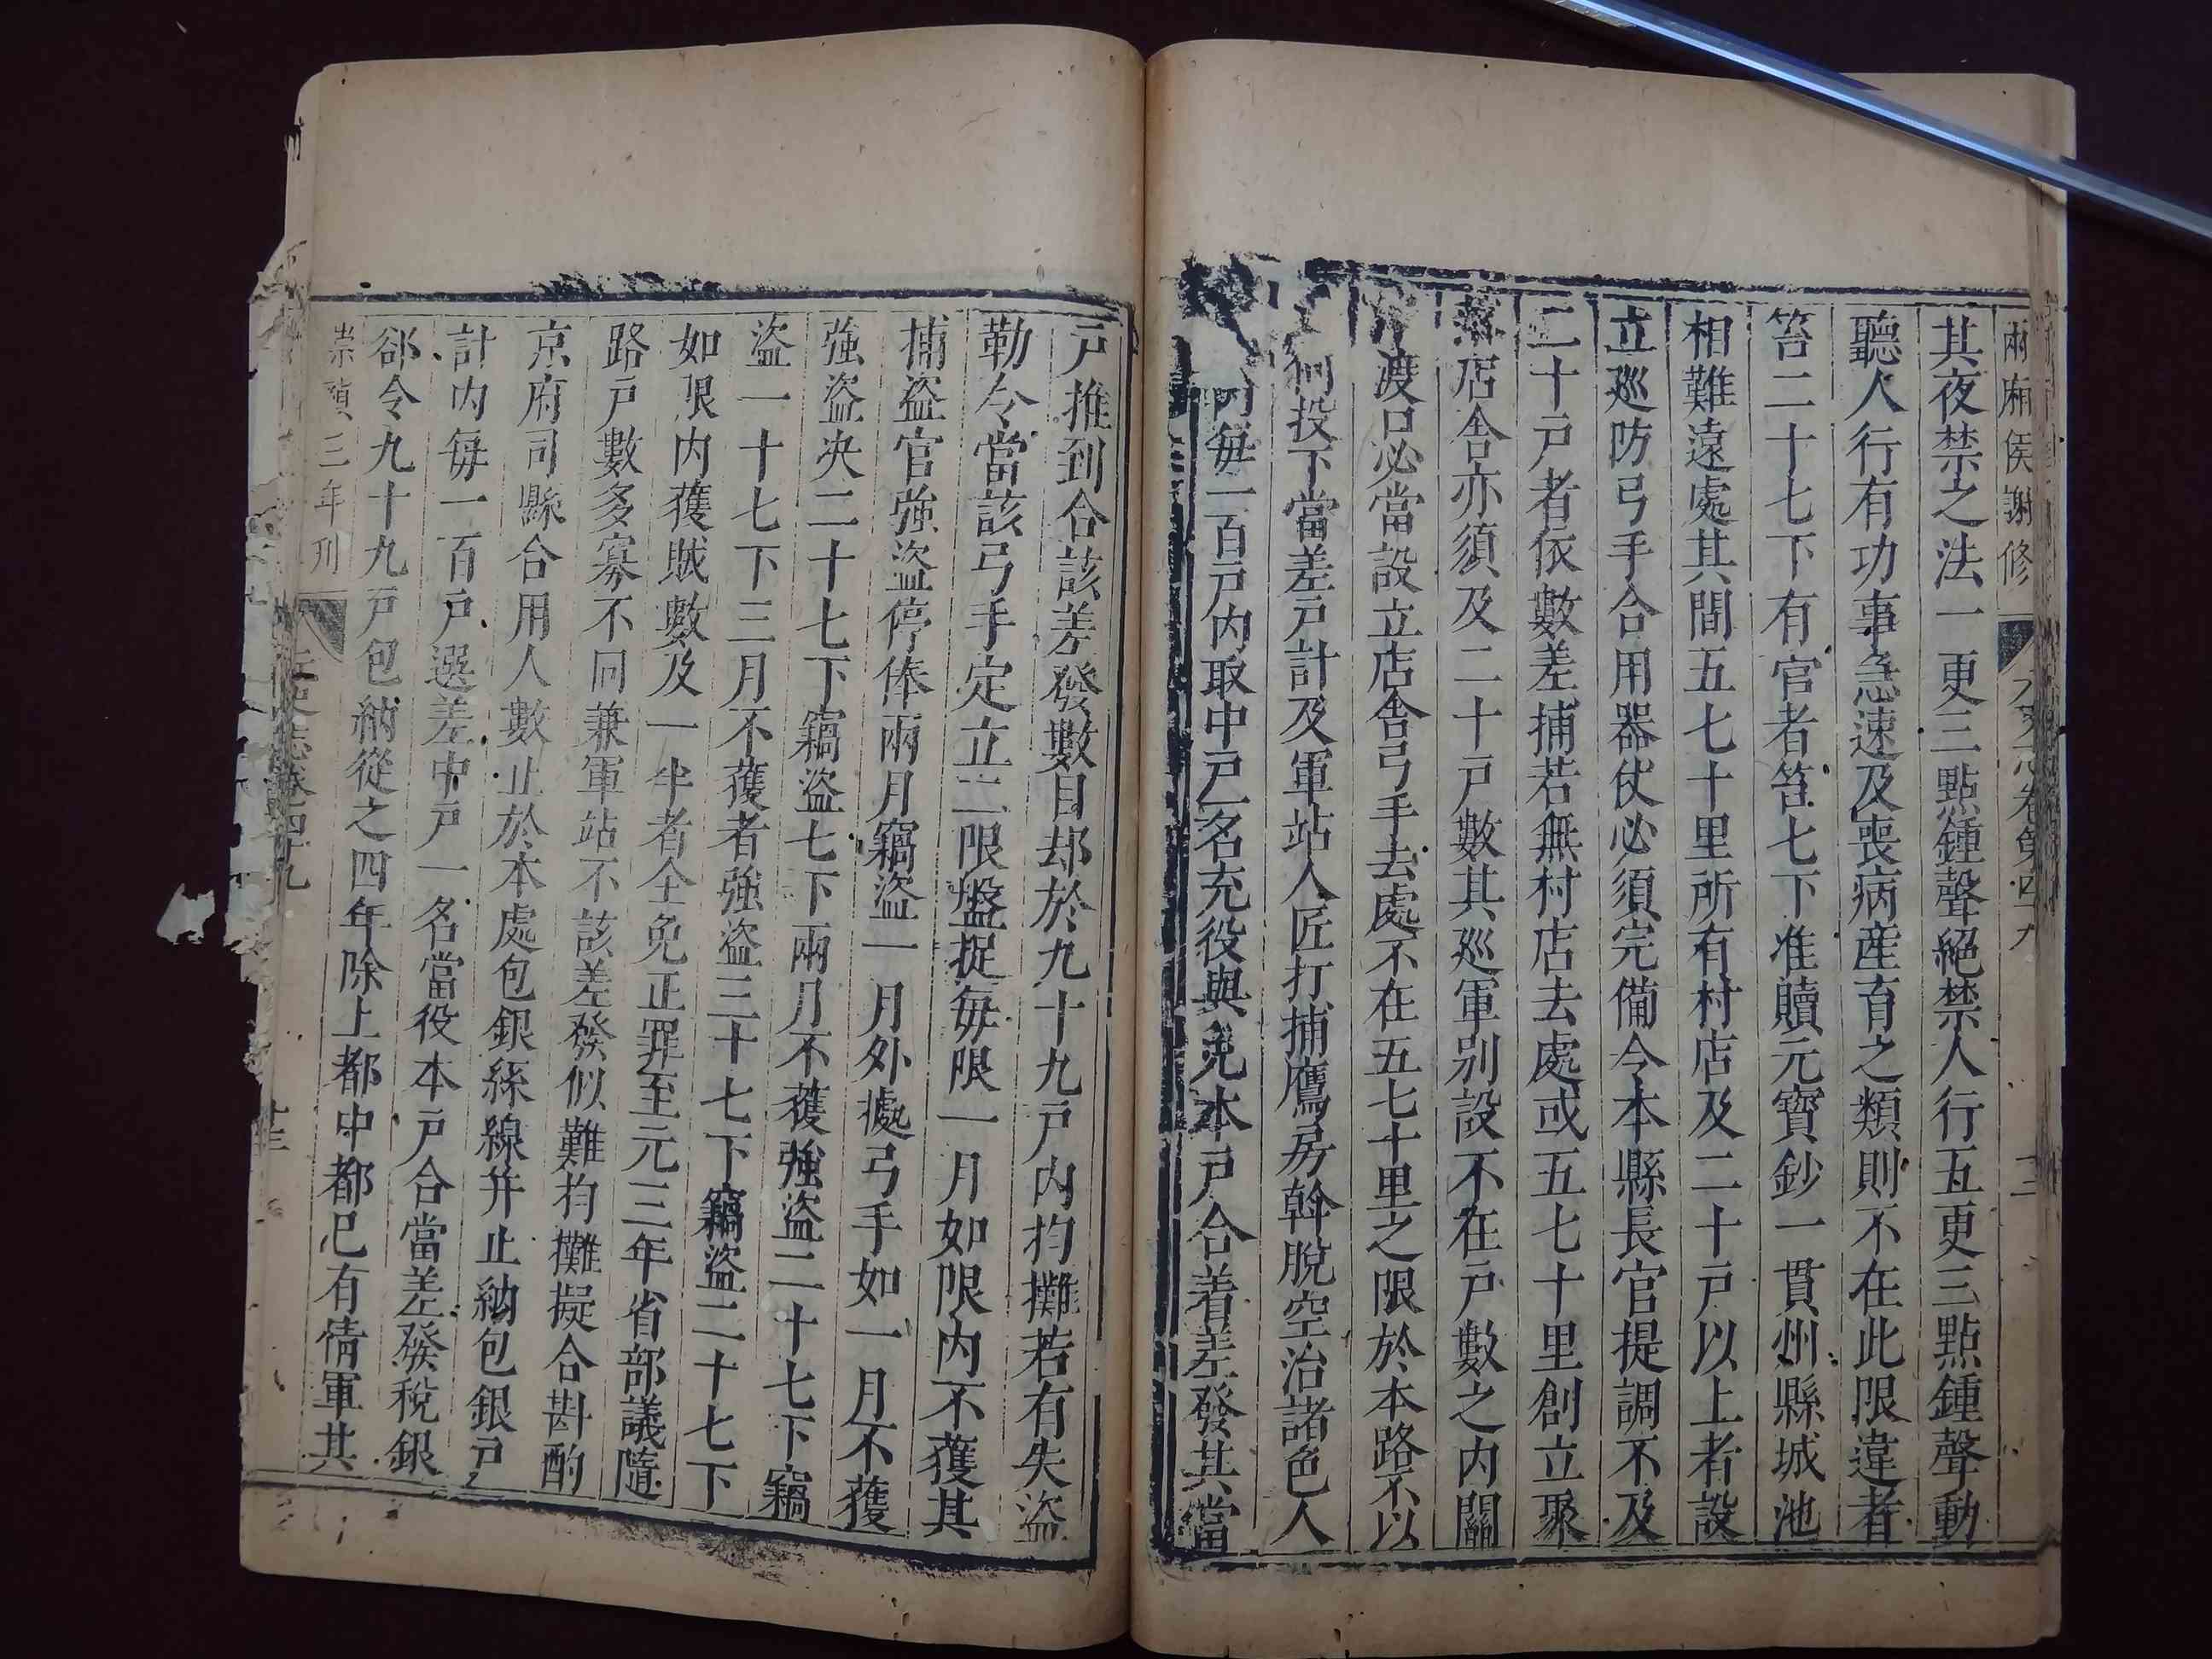 兩廂侯謝修
卷第四九
其夜禁之法一更三點鍾聲絕禁人行五更三點鍾聲動
聽人行有功事急速及喪病産育之類則不在此限違者
笞二十七下有官者笞七下准贖元寶鈔一貫州縣城池
相離遠處其間五七十里所有村店及二十戸以上者設
立巡防弓手合用器仗必須完備令本縣長官提調不及
二十戸者依數差捕若無村店去處或五七十里創立聚
落店舎亦須及二十戸數其巡軍别設不在戸數之内關
渡口必當設立店舎弓手去處不在五七十里之限於本路不以
何投下當差戸計及軍站人匠打捕鷹房斡脫空治諸色人
内每一百戸内取中戸一名充役與免本戸合着差發其當
戸推到合該差發數目却於九十九戸内均攤若有失盜
勒令當該弓手定立三限盤捉每限一月如限内不獲其
捕盜官強盜停俸兩月竊盜一月外處弓手如一月不獲
強盜决二十七下竊盜七下兩月不獲強盜二十七下竊
盜一十七下三月不獲者強盜三十七下竊盜二十七下
如限内獲賊數及一半者全免正罪至元三年省部議隨
路戸數多寡不同兼軍站不該差發似難均攤擬合斟酌
京府司縣合用人數止於本處包銀絲線并止納包銀戸
計内每一百戸選差中戸一名當役本戸合當差發稅銀
郤令九十九戸包納從之四年除上都中都已有情軍其
崇禎三年刋
志卷四九